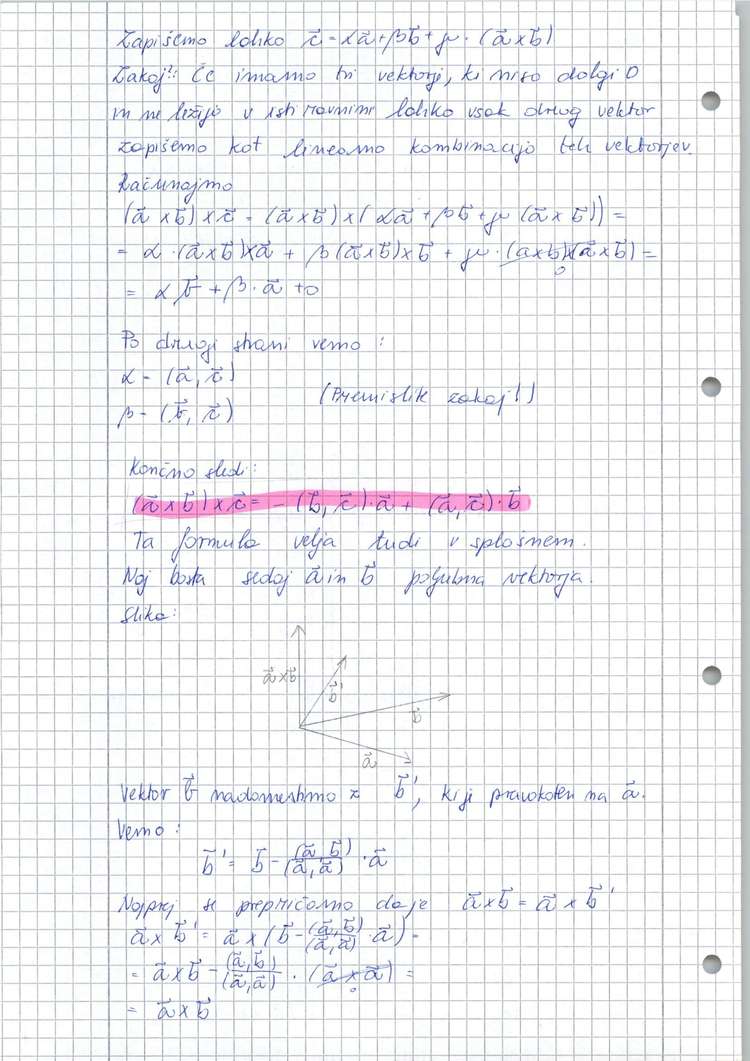 Zapišemo lahko c⃗ = αa⃗ + βb⃗ + μ · (a⃗ x b⃗)
Zakaj?: Če imamo tri vektorje, ki niso dolgi 0
in ne ležijo v isti ravnini lahko vsak drug vektor
zapišemo kot linearno kombinacijo teh vektorjev.
Računajmo
(a⃗ x b⃗) x c⃗ = (a⃗ x b⃗) x (αa⃗ + βb⃗ + μ (a⃗ x b⃗)) =
= α · (a⃗ x b⃗) x a⃗ + β (a⃗ x b⃗) x b⃗ + μ · (a x b) x (a⃗ x b⃗) =
0
= α b⃗ + β · a⃗ + 0
Po drugi strani vemo :
α = (a⃗, c⃗)
β = (b⃗, c⃗) (Premislite zakaj!)
Končno sledi:
(a⃗ x b⃗) x c⃗ = - (b⃗, c⃗) · a⃗ + (a⃗, c⃗) · b⃗
Ta formula velja tudi v splošnem.
Naj bosta sedaj a⃗ in b⃗ poljubna vektorja.
Slika:
a⃗ x b⃗
b⃗'
b⃗
a⃗
Vektor b⃗ nadomestimo z b⃗', ki je pravokoten na a⃗.
Vemo :
b⃗' = b⃗ - (a⃗, b⃗)/(a⃗, a⃗) · a⃗
Najprej se prepričamo da je a⃗ x b⃗ = a⃗ x b⃗'
a⃗ x b⃗' = a⃗ x (b⃗ - (a⃗, b⃗)/(a⃗, a⃗) · a⃗) =
= a⃗ x b⃗ - (a⃗, b⃗)/(a⃗, a⃗) · (a⃗ x a⃗) =
0
= a⃗ x b⃗